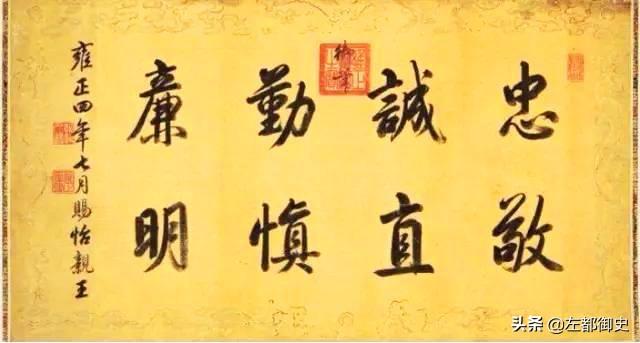 忠敬
誠直
勤慎
廉明
御筆
雍正四年七月賜怡親王
头条 @左都御史